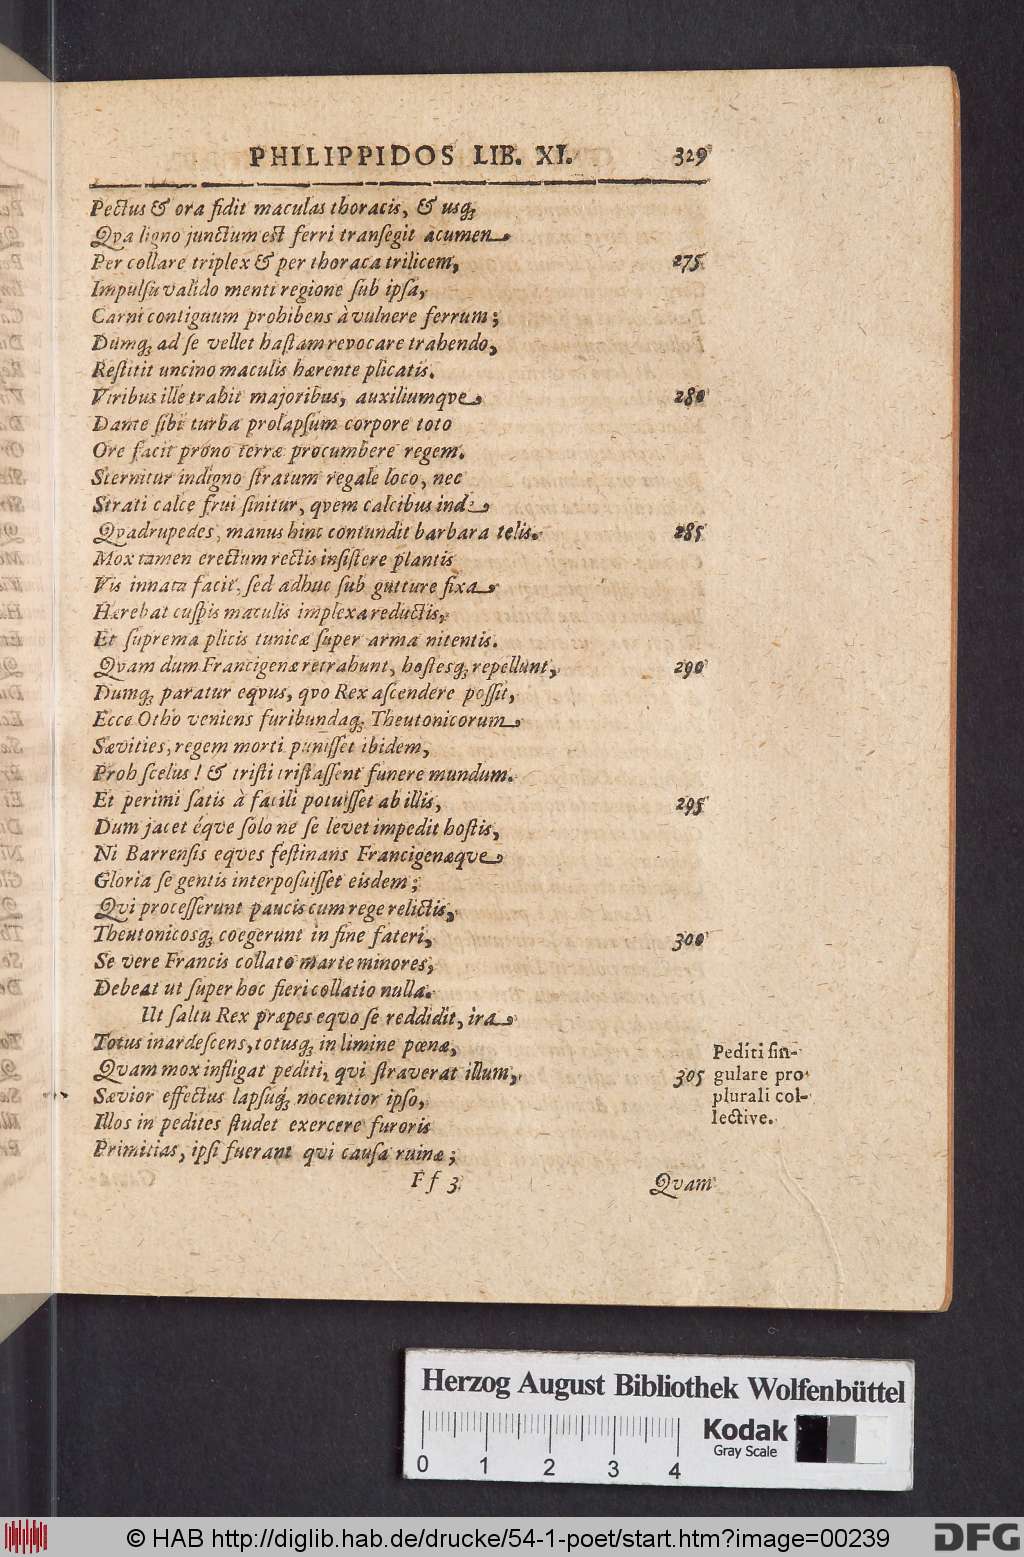 PHILIPPIDOS LIB. XI. 329
Pectus & ora fidit maculas thoracis, & usq;
Qva ligno junctum est ferri transegit acumen
Per collare triplex & per thoraca trilicem, 275
Impulsu valido menti regione sub ipsa,
Carni contiguum prohibens à vulnere ferrum;
Dumq; ad se vellet hastam revocare trahendo,
Restitit uncino maculis hærente plicatis.
Viribus ille trahit majoribus, auxiliumqve 280
Dante sibi turba prolapsum corpore toto
Ore facit prono terræ procumbere regem.
Sternitur indigno stratum regale loco, nec
Strati calce frui sinitur, qvem calcibus inde
Qvadrupedes, manus hinc contundit barbara telis. 285
Mox tamen erectum rectis insistere plantis
Vis innata facit, sed adhuc sub gutture fixa
Hærebat cuspis maculis implexa reductis,
Et suprema plicis tunicæ super arma nitentis.
Qvam dum Francigenæ retrahunt, hostesq; repellunt, 290
Dumq; paratur eqvus, qvo Rex ascendere possit,
Ecce Otho veniens furibundaq; Theutonicorum
Sævities, regem morti punisset ibidem,
Proh scelus! & tristi tristassent funere mundum.
Et perimi satis à facili potuisset ab illis, 295
Dum jacet éqve solo ne se levet impedit hostis,
Ni Barrensis eqves festinans Francigenæqve
Gloria se gentis interposuisset eisdem;
Qvi processerunt paucis cum rege relictis,
Theutonicosq; coegerunt in fine fateri, 300
Se vere Francis collato marte minores,
Debeat ut super hoc fieri collatio nulla.
Ut saltu Rex præpes eqvo se reddidit, ira
Totus inardescens, totusq; in limine pœnæ,
Qvam mox infligat pediti, qvi straverat illum, 305
Sævior effectus lapsuq; nocentior ipso,
Illos in pedites studet exercere furoris
Primitias, ipsi fuerant qvi causa ruinæ;
Pediti sin-
gulare pro
plurali col-
lective.
F f 3 Qvam
Herzog August Bibliothek Wolfenbüttel
0 1 2 3 4
Kodak
Gray Scale
© HAB http://diglib.hab.de/drucke/54-1-poet/start.htm?image=00239
DFG